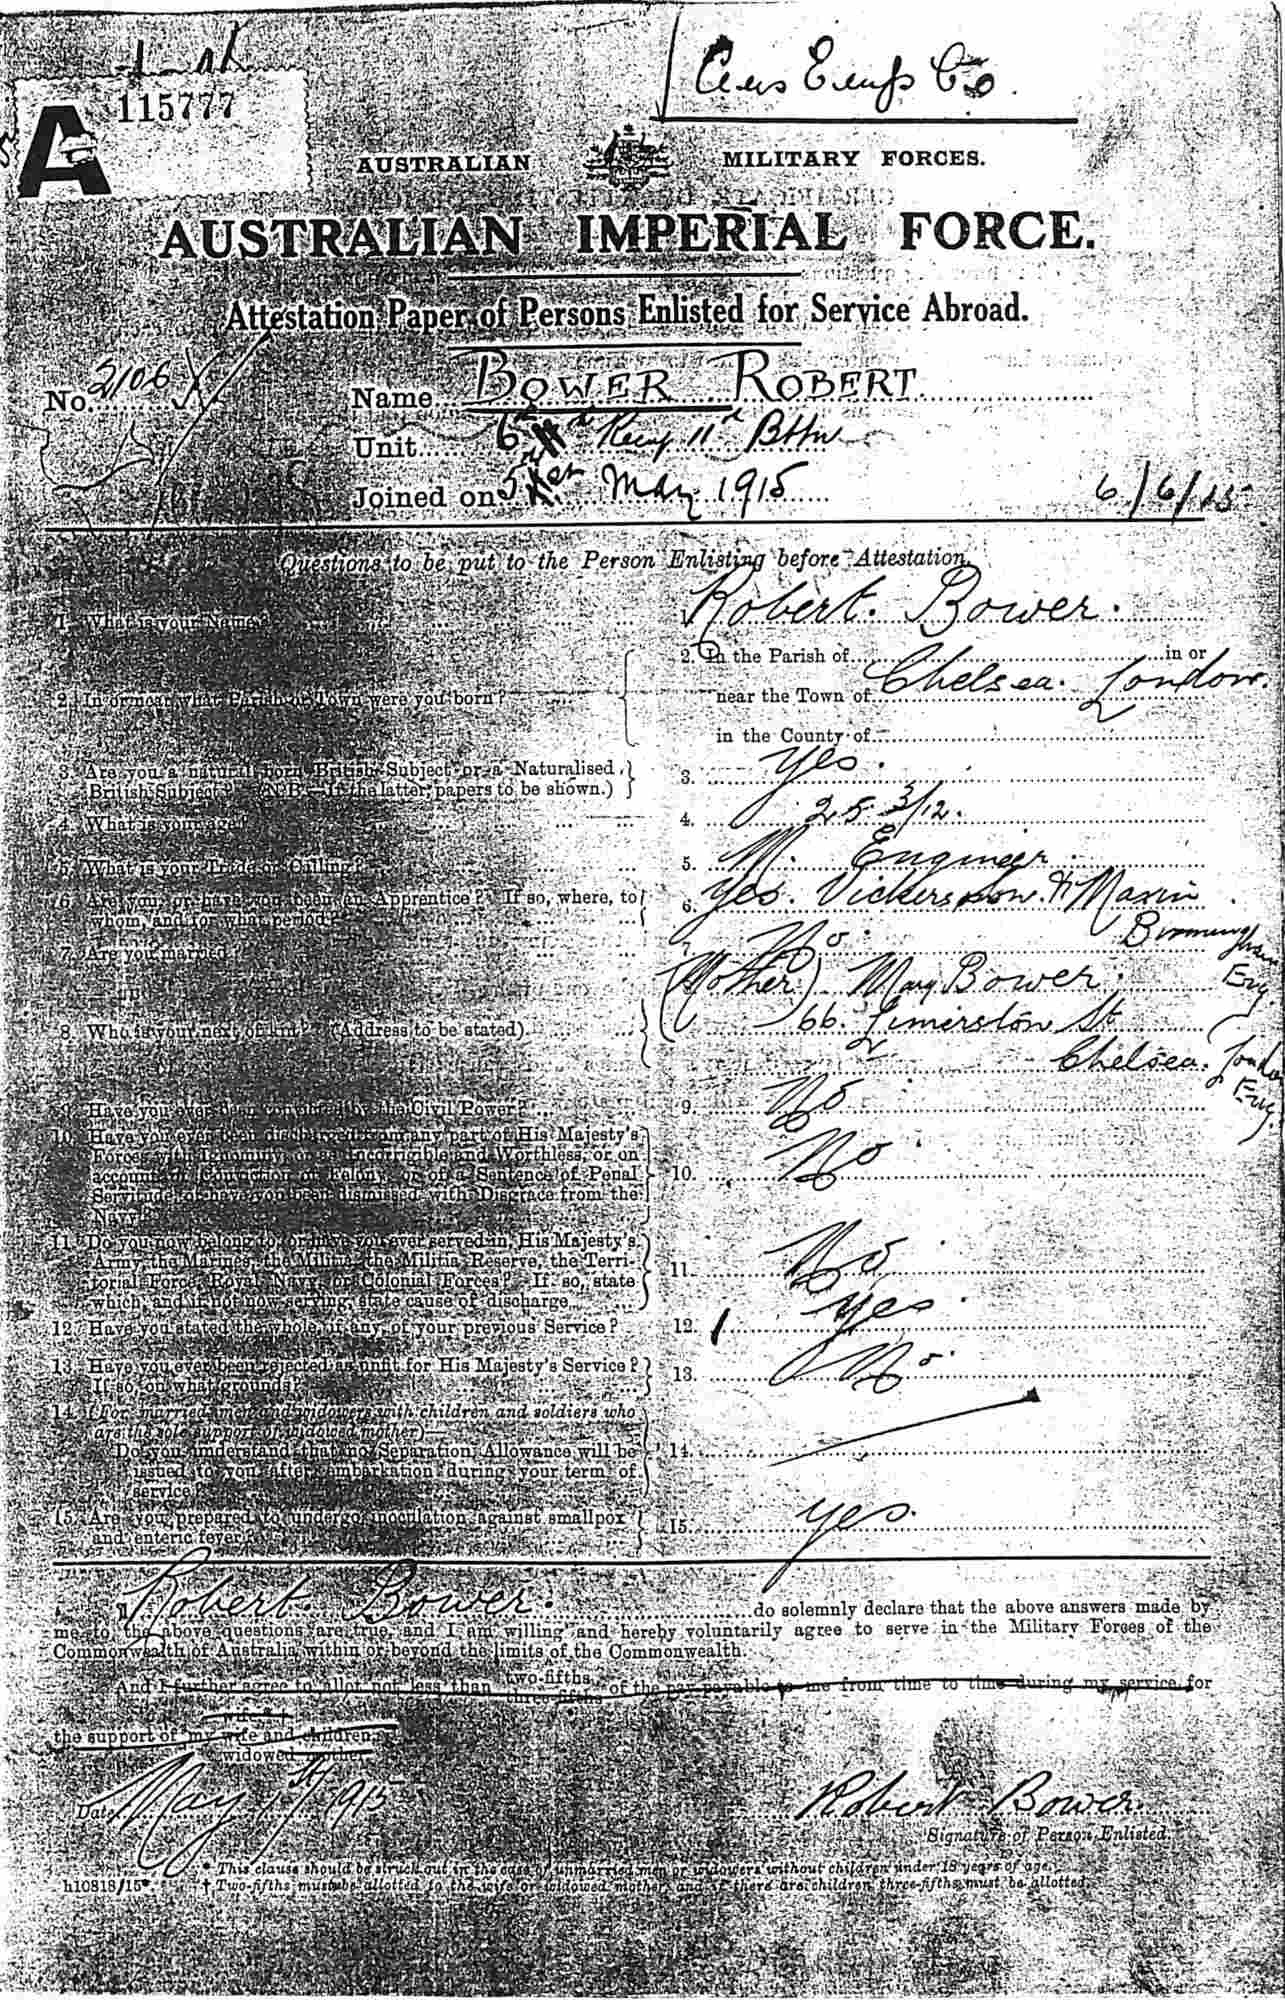 115777
A
AUSTRALIAN MILITARY FORCES.
AUSTRALIAN IMPERIAL FORCE.
Attestation Paper of Persons Enlisted for Service Abroad.
No. 2106
Name BOWER ROBERT
Unit 6th 11th Bttn
Joined on 5th May 1915 6/6/15
Questions to be put to the Person Enlisting before Attestation.
1. What is your Name? 1. Robert Bower.
2. In or near what Parish or Town were you born? 2. In the Parish of in or
near the Town of Chelsea. London.
in the County of
3. Are you a natural born British Subject or a Naturalised
British Subject? (N.B.—If the latter, papers to be shown.) 3. Yes.
4. What is your age? 4. 25 3/12.
5. What is your Trade or Calling? 5. M. Engineer
6. Are you, or have you been an Apprentice? If so, where, to
whom, and for what period? 6. Yes. Vickers & Maxim
Birmingham Eng.
7. Are you married? 7. No.
8. Who is your next of kin? (Address to be stated) (Mother) Mary Bower.
66. Limerston St
Chelsea. London Eng.
9. Have you ever been convicted by the Civil Power? 9. No
10. Have you ever been discharged from any part of His Majesty's
Forces, with Ignominy, or as Incorrigible and Worthless, or on
account of Conviction of Felony, or of a Sentence of Penal
Servitude, or have you been dismissed with Disgrace from the
Navy? 10. No
11. Do you now belong to, or have you ever served in, His Majesty's
Army, the Marines, the Militia, the Militia Reserve, the Terri-
torial Force, Royal Navy, or Colonial Forces? If so, state
which, and if not now serving, state cause of discharge 11. No
12. Have you stated the whole, if any, of your previous Service? 12. Yes.
13. Have you ever been rejected as unfit for His Majesty's Service?
If so, on what grounds? 13. No.
14. (For married men and widowers with children and soldiers who
are the sole support of widowed mother)—
Do you understand that no Separation Allowance will be
issued to you after embarkation during your term of
service? 14.
15. Are you prepared to undergo inoculation against smallpox
and enteric fever? 15. Yes.
I, Robert Bower. do solemnly declare that the above answers made by
me to the above questions are true, and I am willing and hereby voluntarily agree to serve in the Military Forces of the
Commonwealth of Australia within or beyond the limits of the Commonwealth.
And I further agree to allot not less than two-fifths three-fifths of the pay payable to me from time to time during my service for
the support of my wife wife and children widowed mother
Date May 1st 1915 Robert Bower.
Signature of Person Enlisted.
* This clause should be struck out in the case of unmarried men or widowers without children under 18 years of age.
h10818/15 † Two-fifths must be allotted to the wife or widowed mother, and if there are children three-fifths must be allotted.